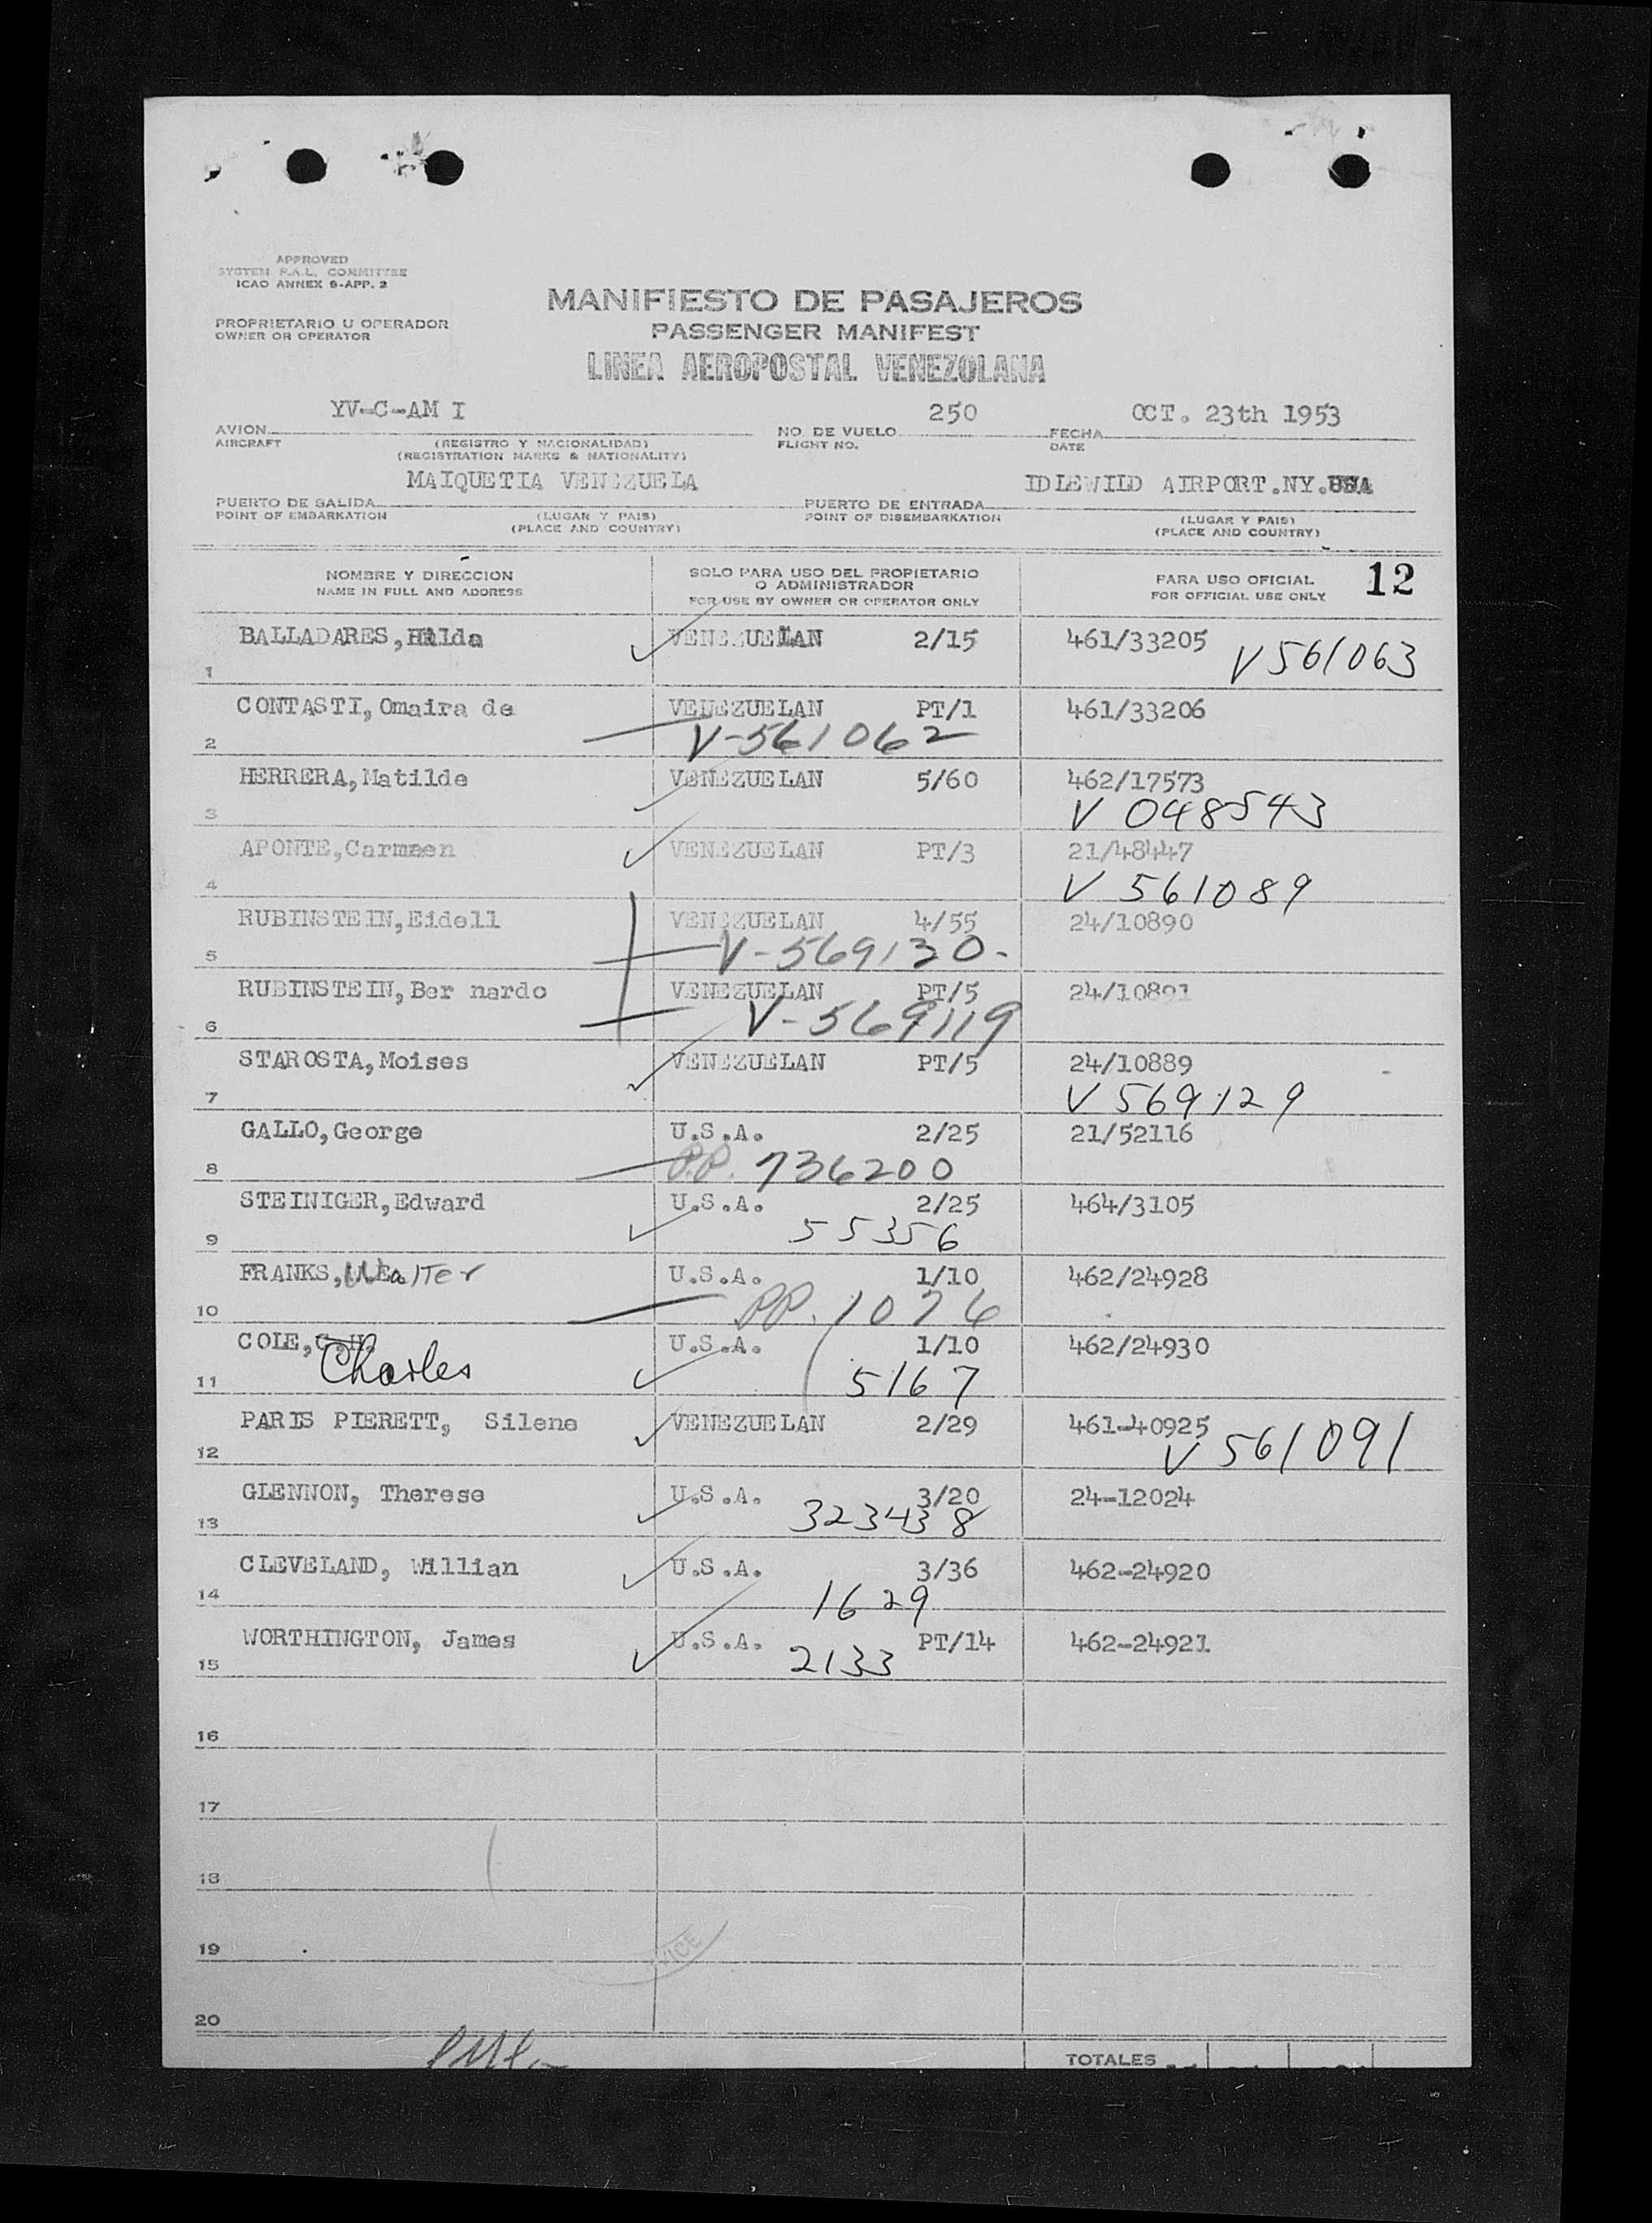 APPROVED
SYSTEM F.A.L. COMMITTEE
ICAO ANNEX 9-APP. 2
MANIFIESTO DE PASAJEROS
PROPRIETARIO U OPERADOR
OWNER OR OPERATOR
PASSENGER MANIFEST
LINEA AEROPOSTAL VENEZOLANA
YV-C-AM I 250 OCT. 23th 1953
AVION NO. DE VUELO FECHA
AIRCRAFT (REGISTRO Y NACIONALIDAD) FLIGHT NO. DATE
(REGISTRATION MARKS & NATIONALITY)
MAIQUETIA VENEZUELA IDLEWILD AIRPORT.NY.USA
PUERTO DE SALIDA PUERTO DE ENTRADA
POINT OF EMBARKATION (LUGAR Y PAIS) POINT OF DISEMBARKATION (LUGAR Y PAIS)
(PLACE AND COUNTRY) (PLACE AND COUNTRY)
NOMBRE Y DIRECCION SOLO PARA USO DEL PROPIETARIO PARA USO OFICIAL 12
NAME IN FULL AND ADDRESS O ADMINISTRADOR FOR OFFICIAL USE ONLY
FOR USE BY OWNER OR OPERATOR ONLY
BALLADARES,Hilda VENEZUELAN 2/15 461/33205
1 V 561063
CONTASTI,Omaira de VENEZUELAN PT/1 461/33206
2 V-561062
HERRERA,Matilde VENEZUELAN 5/60 462/17573
3 V 048543
APONTE,Carmen VENEZUELAN PT/3 21/48447
4 V 561089
RUBINSTEIN,Eidell VENEZUELAN 4/55 24/10890
5 V-569130-
RUBINSTEIN,Ber nardo VENEZUELAN PT/5 24/10891
6 V-569119
STAROSTA,Moises VENEZUELAN PT/5 24/10889
7 V 569129
GALLO,George U.S.A. 2/25 21/52116
8 P.P. 736200
STEINIGER,Edward U.S.A. 2/25 464/3105
9 55356
FRANKS,Walter U.S.A. 1/10 462/24928
10 PP. 1076
COLE,C.H. U.S.A. 1/10 462/24930
11 Charles 5167
PARIS PIERETT, Silene VENEZUELAN 2/29 461-40925
12 V 561091
GLENNON, Therese U.S.A. 3/20 24-12024
13 323438
CLEVELAND, Willian U.S.A. 3/36 462-24920
14 1629
WORTHINGTON, James U.S.A. PT/14 462-24921
15 2133
16
17
18
19
20
TOTALES